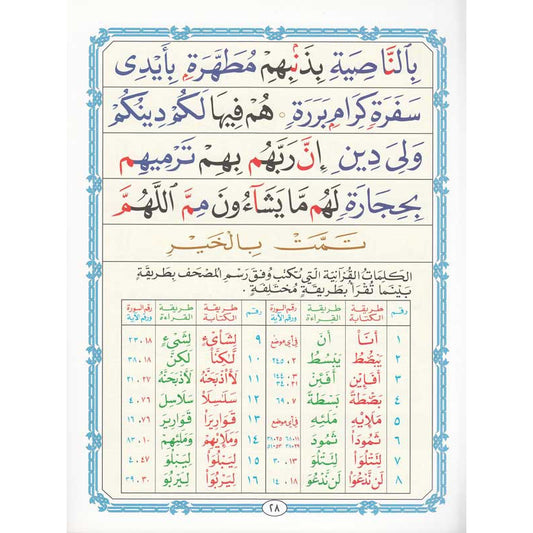 بِالنَّاصِيَةِ بِذَنْبِهِمْ مُطَهَّرَةٍ بِأَيْدِى
سَفَرَةٍ كِرَامٍ بَرَرَةٍ هُمْ فِيهَا لَكُمْ دِينُكُمْ
وَلِىَ دِينِ إِنَّ رَبَّهُم بِهِمْ تَرْمِيهِم
بِحِجَارَةٍ لَهُم مَا يَشَآءُونَ مِمَّ اللَّهُمَّ
تَمَّتْ بِالْخَيْرِ
الكلِمَاتُ القُرْآنِيَة الَّتِي تُكتَبُ وَفِقَ رَسْمِ المُصْحَفِ بِطَرِيقَةٍ
بَيْنَمَا تُقرَأ بِطَرِيقَةٍ مُخْتَلِفَةٍ .
رقم طريقة الكتابة طريقة القراءة رقم السورة ورقم الآية رقم طريقة الكتابة طريقة القراءة رقم السورة ورقم الآية
١ أَنَا أَنَ في أي موضع ٩ لِشَاْىْءٍ لِشَىْءٍ ١٨ ، ٢٣
٢ يَبْصُۜطُ يَبْسُطُ ٢ ، ٢٤٥ ١٠ لَٰكِنَّا لَٰكِنَّ ١٨ ، ٣٨
٣ أَفَإِيْن أَفَئِنْ ٣ ، ١٤٤ ٢١ ، ٣٤ ١١ لَأَاْذْبَحَنَّهُ لَأَذْبَحَنَّهُ ٢٧ ، ٢١
٤ بَصْۜطَةً بَسْطَةً ٧ ، ٦٩ ١٢ سَلَٰسِلَا۟ سَلَاسِلَ ٧٦ ، ٤
٥ مَلَإِيْهِ مَلَئِهِ في أي موضع ١٣ قَوَارِيرَا۟ قَوَارِيرَ ٧٦ ، ١٦
٦ ثَمُودَا۟ ثَمُودَ ١٤ وَمَلَإِيْهِمْ وَمَلَئِهِمْ ١٠ ، ٨٣
٧ لِتَتْلُوَا۟ لِتَتْلُوَ ١٣ ، ٣٠ ١٥ لِيَبْلُوَا۟ لِيَبْلُوَ ٤٧ ، ٤
٨ لَن نَدْعُوَا۟ لَن نَدْعُوَ ١٨ ، ١٤ ١٦ لِيَرْبُوَا۟ لِيَرْبُوَ ٣٠ ، ٣٩
٢٨